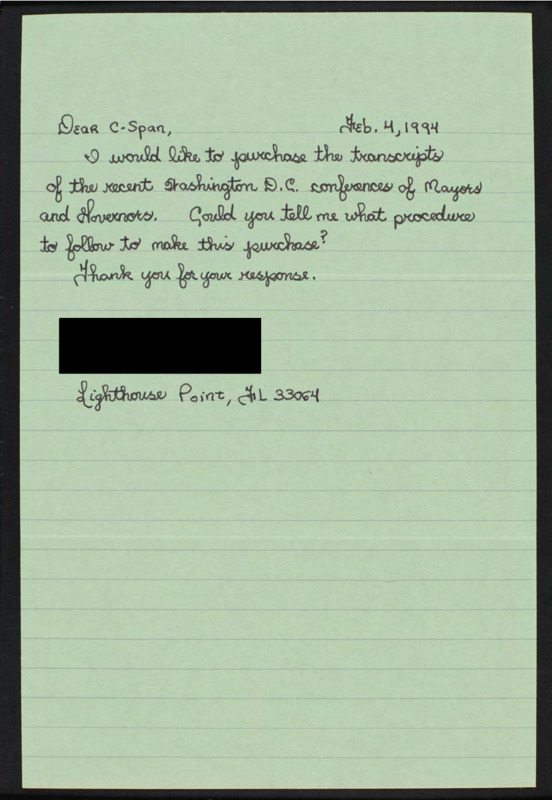 Dear C-Span, Feb. 4, 1994
I would like to purchase the transcripts
of the recent Washington D.C. conferences of Mayors
and Governors. Could you tell me what procedure
to follow to make this purchase?
Thank you for your response.
Lighthouse Point, FL 33064